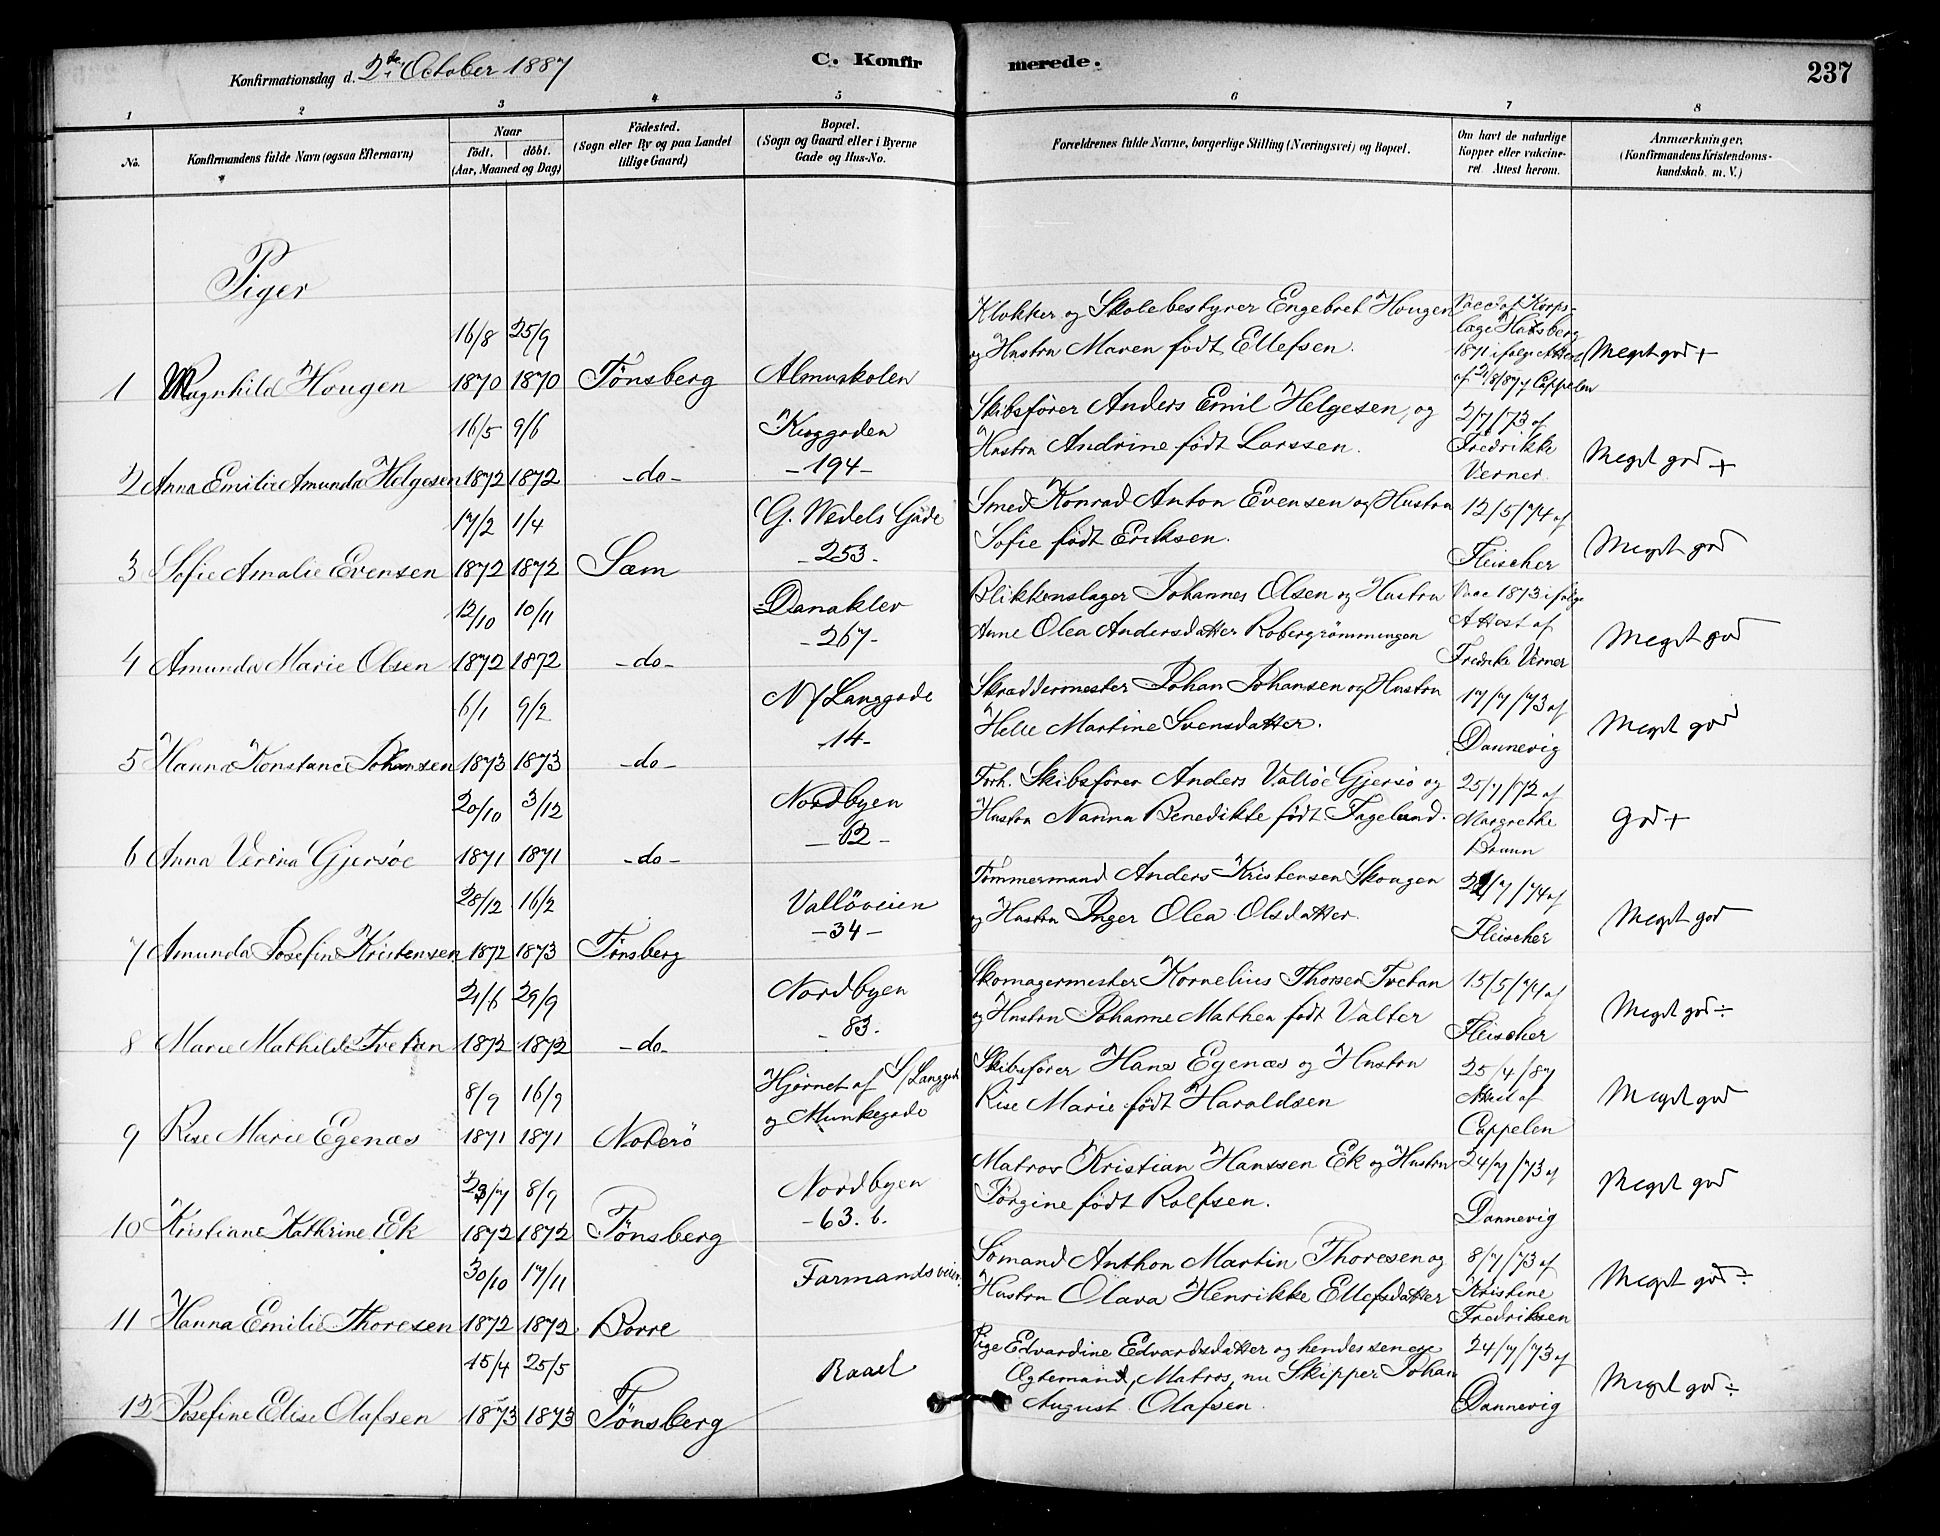 Konfirmationsdag d. 2den October 1887
C. Konfirmerede.
237
1 2 3 4 5 6 7 8
No.
Konfirmandens fulde Navn (ogsaa Efternavn)
Naar
födt. döbt.
(Aar, Maaned og Dag)
Födested.
(Sogn eller By og paa Landet tillige Gaard)
Bopæl.
(Sogn og Gaard eller i Byerne Gade og Hus-No.
Forældrenes fulde Navne, borgerlige Stilling (Næringsvei) og Bopæl.
Om havt de naturlige Kopper eller vakcineret. Attest herom.
Anmærkninger.
(Konfirmandens Kristendomskundskab. m. V.)
Piger
16/8 25/9
1 Magnhild Hougen 1870 1870 Tönsberg Almuskolen
Klokker og Skolebestyrer Engebret Hougen
og Hustru Maren födt Ellefsen.
Vacc af Korps-
læge Hansberg
1871 ifølge Attest
af 21/8/87 Cappelen
Meget god +
16/5 9/6
2 Anna Emilie Amunda Helgesen 1872 1872 -do- Kirkegaden
-194-
Skibsfører Anders Emil Helgesen, og
Hustru Andrine födt Larssen.
2/7/73 af
Fredrikke
Verner
Meget god +
17/2 1/4
3 Sofie Amalie Evensen 1872 1872 Sæm G. Wedels Gade
-253-
Smed Konrad Anton Evensen og Hustru
Sofie födt Eriksen.
12/5/74 af
Fleischer
Meget god
12/10 10/11
4 Amunda Marie Olsen 1872 1872 -do- Danaklev
-267-
Blikkenslager Johannes Olsen og Hustru
Anne Olea Andersdatter Robergrømmingen
Vac 1873 ifølge
Attest af
Fredrike Verner
Meget god
6/1 9/2
5 Hanna Konstance Johansen 1873 1873 -do- N/Langgade
-14-
Skræddermester Johan Johansen og Hustru
Helle Martine Svensdatter.
17/7/73 af
Dannevig
Meget god
20/10 3/12
6 Anna Verina Gjersöe 1871 1871 -do- Nordbyen
-62-
Forh. Skibsfører Anders Vallöe Gjersö og
Hustru Nanna Benedikte födt Fagelund.
25/7/72 af
Margrethe
Bruun
god +
28/12 16/2
7 Amunda Josefin Kristensen 1872 1873 Tönsberg Vallöveien
-34-
Tömmermand Anders Kristensen Skougen
og Hustru Inger Olea Olsdatter.
21/7/74 af
Fleischer
Meget god
21/6 29/9
8 Marie Mathilde Tvetan 1872 1872 -do- Nordbyen
-83.
Skomagermester Kornelius Thorsen Tvetan
og Hustru Johanne Mathea födt Valter
15/5/74 af
Fleischer
Meget god ÷
8/9 16/9
9 Rise Marie Egenæs 1871 1871 Noterö Hjørnet af S/Langgade
og Munkegade
Skibsfører Hans Egenæs og Hustru
Rise Marie födt Haraldsen
25/4/87
Attest af
Cappelen
Meget god
23/7 8/9
10 Kristiane Kathrine Ek 1872 1872 Tönsberg Nordbyen
-63. b.
Matros Kristian Hanssen Ek og Hustru
Jörgine födt Rolfsen.
24/7/73 af
Dannevig
Meget god
30/10 17/11
11 Hanna Emilie Thoresen 1872 1872 Borre Farmandsveien
Sömand Anthon Martin Thoresen og
Hustru Olava Henrikke Ellefsdatter
8/7/73 af
Kristine
Fredriksen
Meget god ÷
15/4 25/5
12 Josefine Elise Olafsen 1873 1873 Tönsberg Raael
Pige Edvardine Edvardsdatter og hendes senere
Ægtemand, Matros, nu Skipper Johan
August Olafsen.
24/7/73 af
Dannevig
Meget god ÷